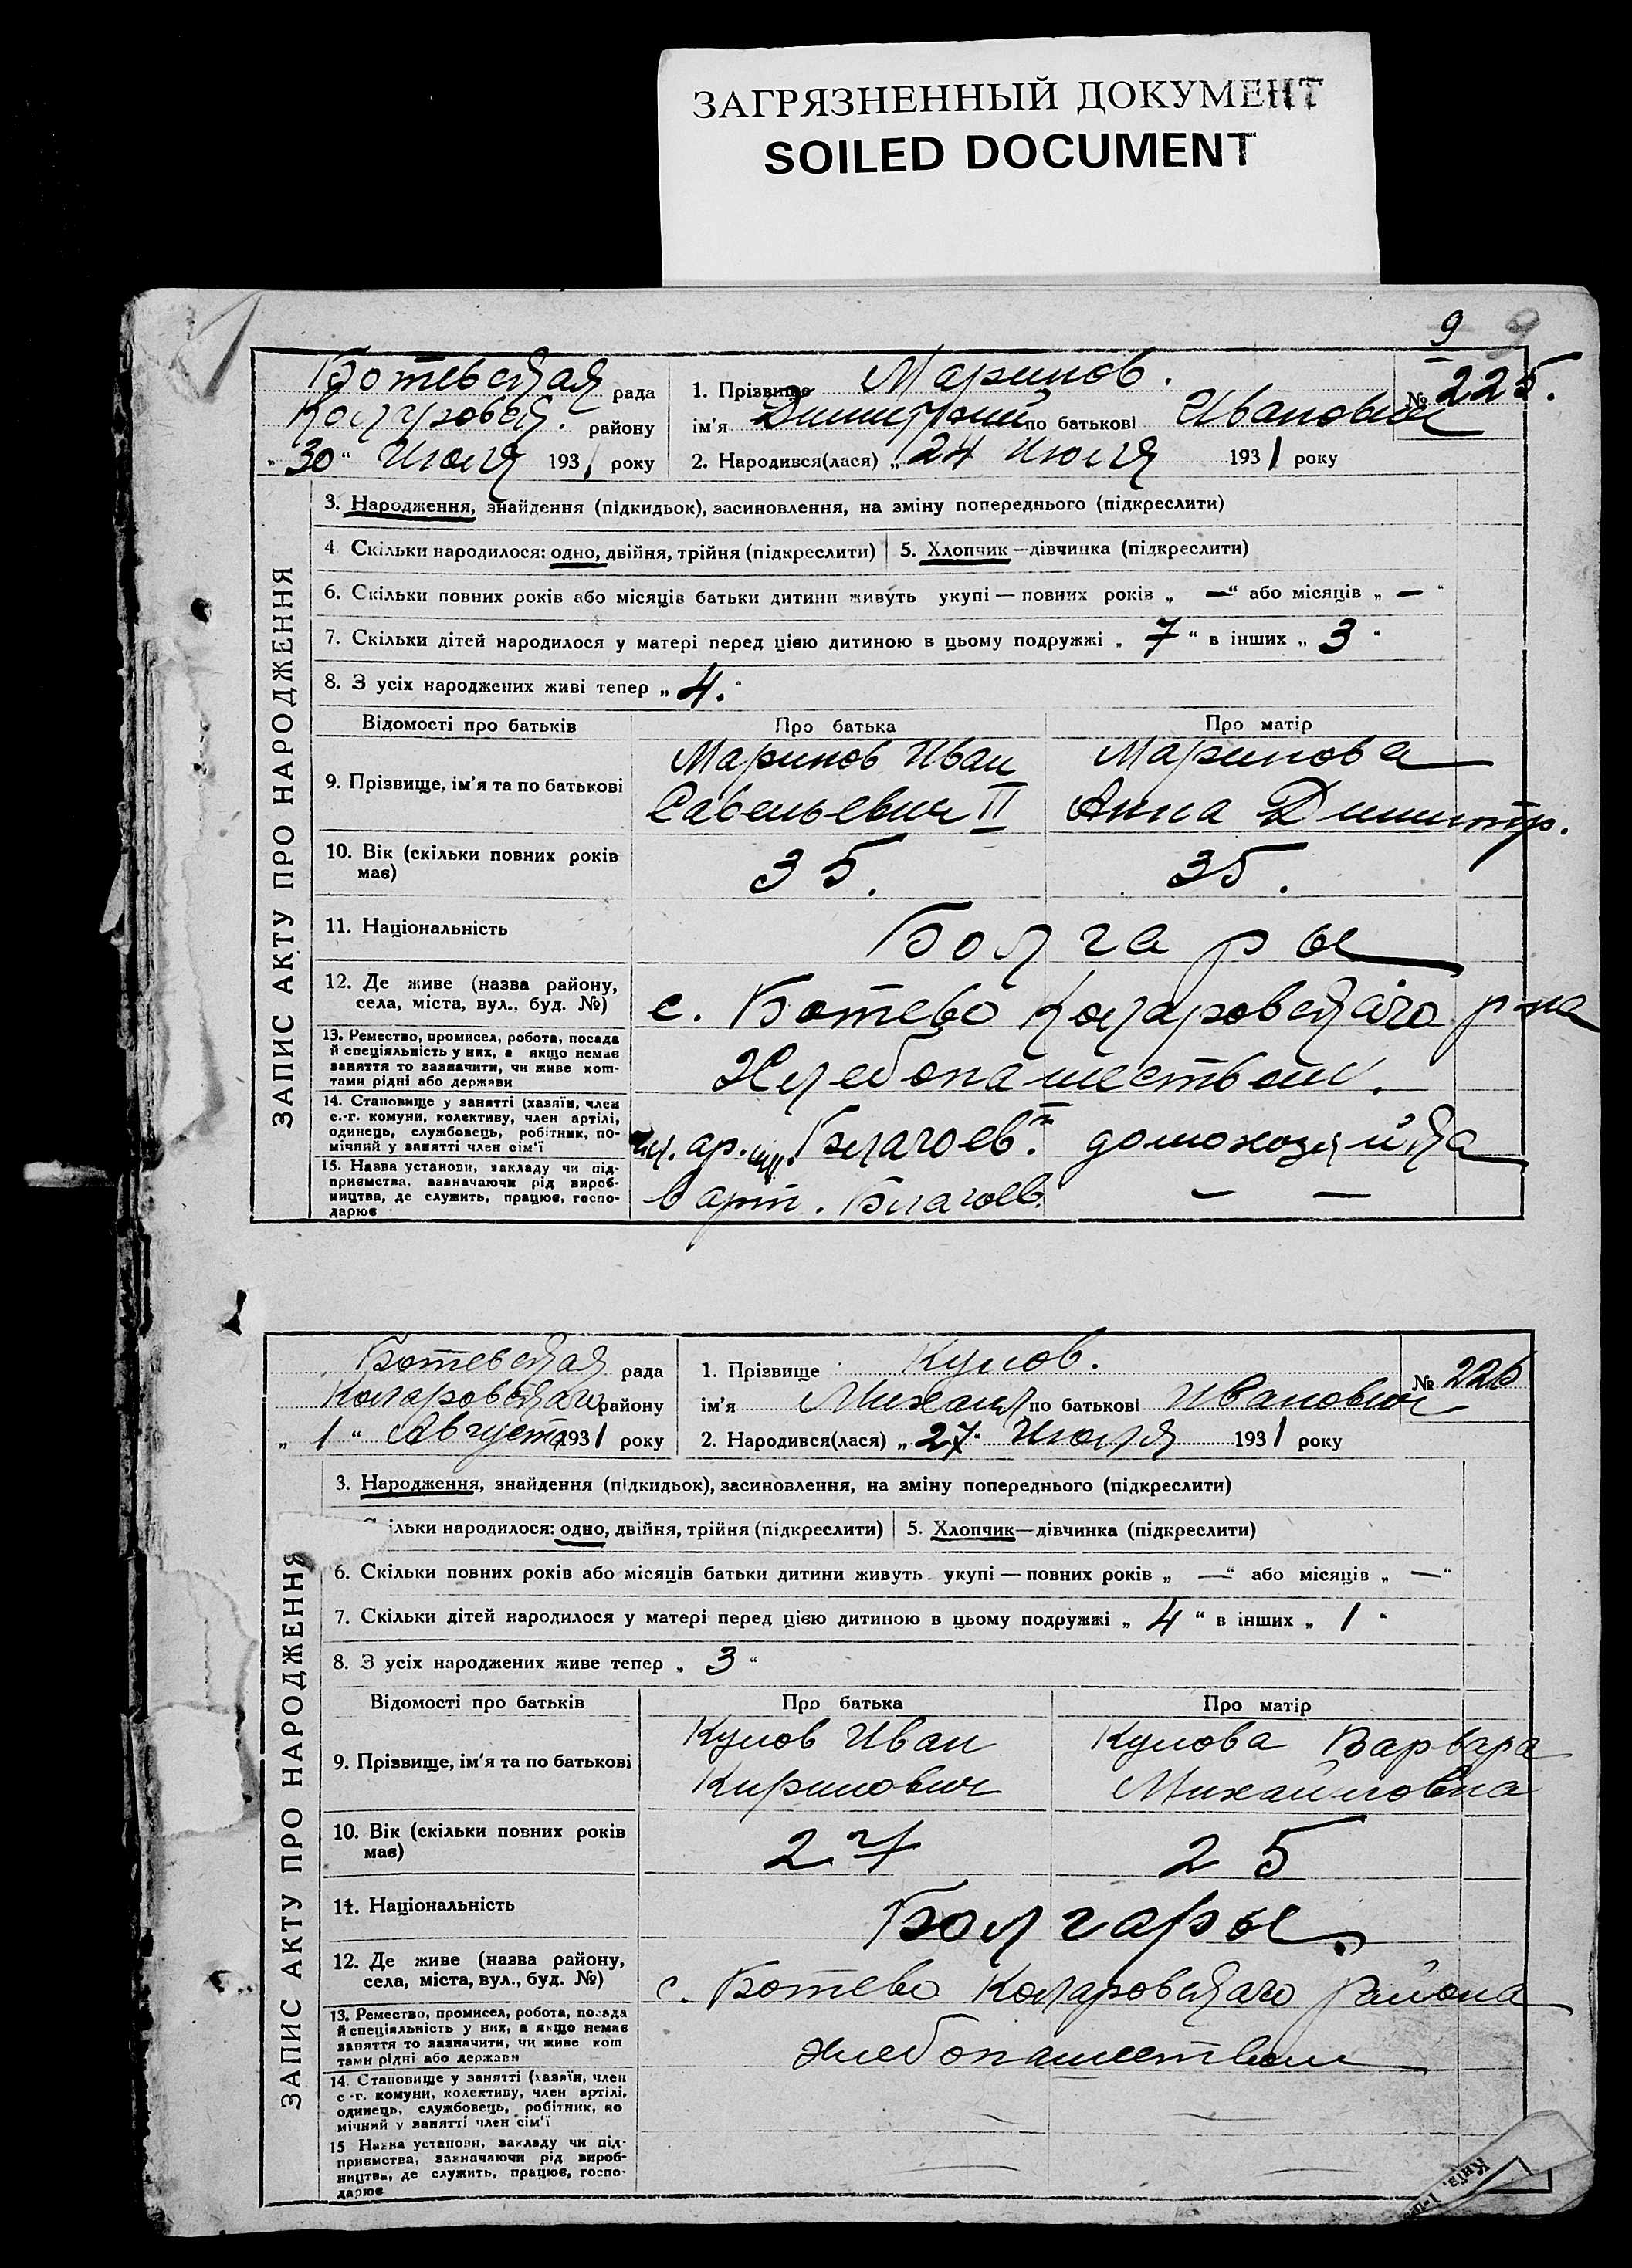 ЗАГРЯЗНЕННЫЙ ДОКУМЕНТ
SOILED DOCUMENT
9 9
ЗАПИС АКТУ ПРО НАРОДЖЕННЯ
Ботевская рада
Коларовск. району
„30“ Июля 1931 року
1. Прізвище Маринов.
№ 225.
ім'я Димитрий по батькові Иванович
2. Народився(лася) „24 Июля 1931 року
3. Народження, знайдення (підкидьок), засиновлення, на зміну попереднього (підкреслити)
4. Скільки народилося: одно, двійня, трійня (підкреслити) 5. Хлопчик—дівчинка (підкреслити)
6. Скільки повних років або місяців батьки дитини живуть укупі — повних років „ — “ або місяців „ — “
7. Скільки дітей народилося у матері перед цією дитиною в цьому подружжі „ 7 “ в інших „ 3 “
8. З усіх народжених живі тепер „ 4. “
Відомості про батьків Про батька Про матір
9. Прізвище, ім'я та по батькові
Маринов Иван
Савельевич II
Маринова
Анна Димитр.
10. Вік (скільки повних років
має)
35. 35.
11. Національність Болгары
12. Де живе (назва району,
села, міста, вул., буд. №)
с. Ботево Коларовскаго р-на
13. Ремество, промисел, робота, посада
й спеціяльність у них, а якщо немає
заняття то зазначити, чи живе кош-
тами рідні або держави
Хлебопашеством.
14. Становище у занятті (хазяїн, член
с.-г. комуни, колективу, член артілі,
одинець, службовець, робітник, по-
мічний у занятті член сім'ї
чл. ар. им. Благоев. домохозяйка
15. Назва установи, закладу чи під-
приємства, зазначаючи рід вироб-
ництва, де служить, працює, госпо-
дарює
в арт. Благоев. — —
ЗАПИС АКТУ ПРО НАРОДЖЕННЯ
Ботевская рада
Коларовскаго району
„ 1 “ Августа 1931 року
1. Прізвище Кулов.
№ 226
ім'я Михаил по батькові Иванович
2. Народився(лася) „27“ Июля 1931 року
3. Народження, знайдення (підкидьок), засиновлення, на зміну попереднього (підкреслити)
ільки народилося: одно, двійня, трійня (підкреслити) 5. Хлопчик—дівчинка (підкреслити)
6. Скільки повних років або місяців батьки дитини живуть укупі — повних років „ — “ або місяців „ — “
7. Скільки дітей народилося у матері перед цією дитиною в цьому подружжі „ 4 “ в інших „ 1 “
8. З усіх народжених живе тепер „ 3 “
Відомості про батьків Про батька Про матір
9. Прізвище, ім'я та по батькові
Кулов Иван
Кирилович
Кулова Варвара
Михайловна
10. Вік (скільки повних років
має)
27 25
11. Національність Болгары.
12. Де живе (назва району,
села, міста, вул., буд. №)
с. Ботево Коларовскаго района
13. Ремество, промисел, робота, посада
й спеціяльність у них, а якщо немає
заняття то зазначити, чи живе кош
тами рідні або держави
хлебопашеством
14. Становище у занятті (хазяїн, член
с.-г. комуни, колективу, член артілі,
одинець, службовець, робітник, по
мічний у занятті член сім'ї
15 Назва установи, закладу чи під-
приємства, зазначаючи рід вироб-
ництва, де служить, працює, госпо-
дарює
Київ.